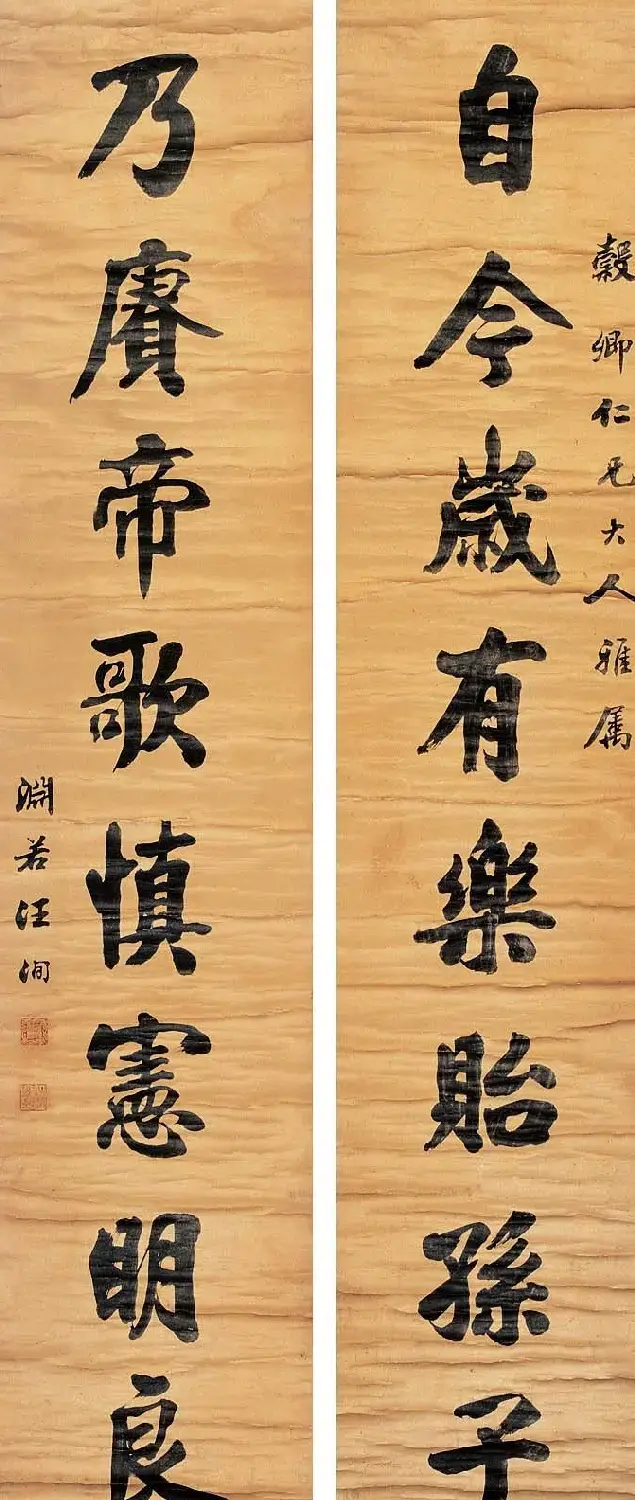 穀卿仁兄大人雅属
自今歲有樂貽孫子
乃賡帝歌慎憲明良
淵若汪洵